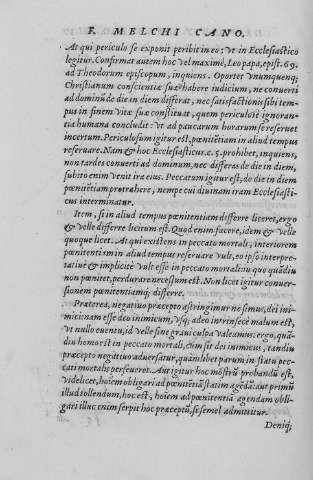 F. MELCHI CANO.
At qui periculo se exponit peribit in eo: vt in Ecclesiastico
legitur. Confirmat autem hoc vel maximè, Leo papa, epist. 69.
ad Theodorum episcopum, inquiens. Oportet vnumquenq;
Christianum conscientiæ suæ habere iudicium, ne conuerti
ad dominũ de die in diem differat, nec satisfactiõnis sibi tem-
pus in finem vitæ suæ cõstituat, quem periculosè ignoran-
tia humana concludit: vt ad paucarum horarum se reseruet
incertum. Periculosum igitur est, pœnitẽtiam in aliud tempus
reseruare. Nam & hoc Ecclesiasticus. c. 5. prohibet, inquiens,
non tardes conuerti ad dominum, nec differas de die in diem,
subito enim venit ira eius. Peccatum igitur est, de die in diem
pœnitẽtiam protrahere, nempe cui diuinam iram Ecclesiasti-
cus interminatur.
Item, si in aliud tempus pœnitentiam differre liceret, ergo
& velle differre licitum est. Quod enim facere, idem & velle
quoque licet. At qui existens in peccato mortali, interiorem
pœnitentiam in aliud tempus reseruare vult, eo ipso interpre-
tatiuè & implicitè vult esse in peccato mortali: tu quo quãdiu
non pœnitet, perdurare necessum est. Non licet igitur conuer-
sionem pœnitentiamq; differre.
Præterea, negatiuo præcepto astringimur ne simus, dei ini-
mici: nam esse deo inimicum, vsq; adeo intrinsecè malum est,
vt nullo euentu, id velle sine graui culpa valeamus: ergo, quã-
diu homo est in peccato mortali, cùm sit dei inimicus, tandiu
præcepto negatiuo aduersatur, quamlibet parum in statu pec-
cati mortalis perseueret. Aut igitur hoc nõstrũ probandũ est,
videlicet, hoiem obligari ad pœnitẽtiã statim agẽdã: aut primũ
illud tollendum, hoc est, hoiem ad pœnitentiã agendam obli-
gari: illuc enim serpit hoc præceptũ, si semel admittitur.
Deniq;